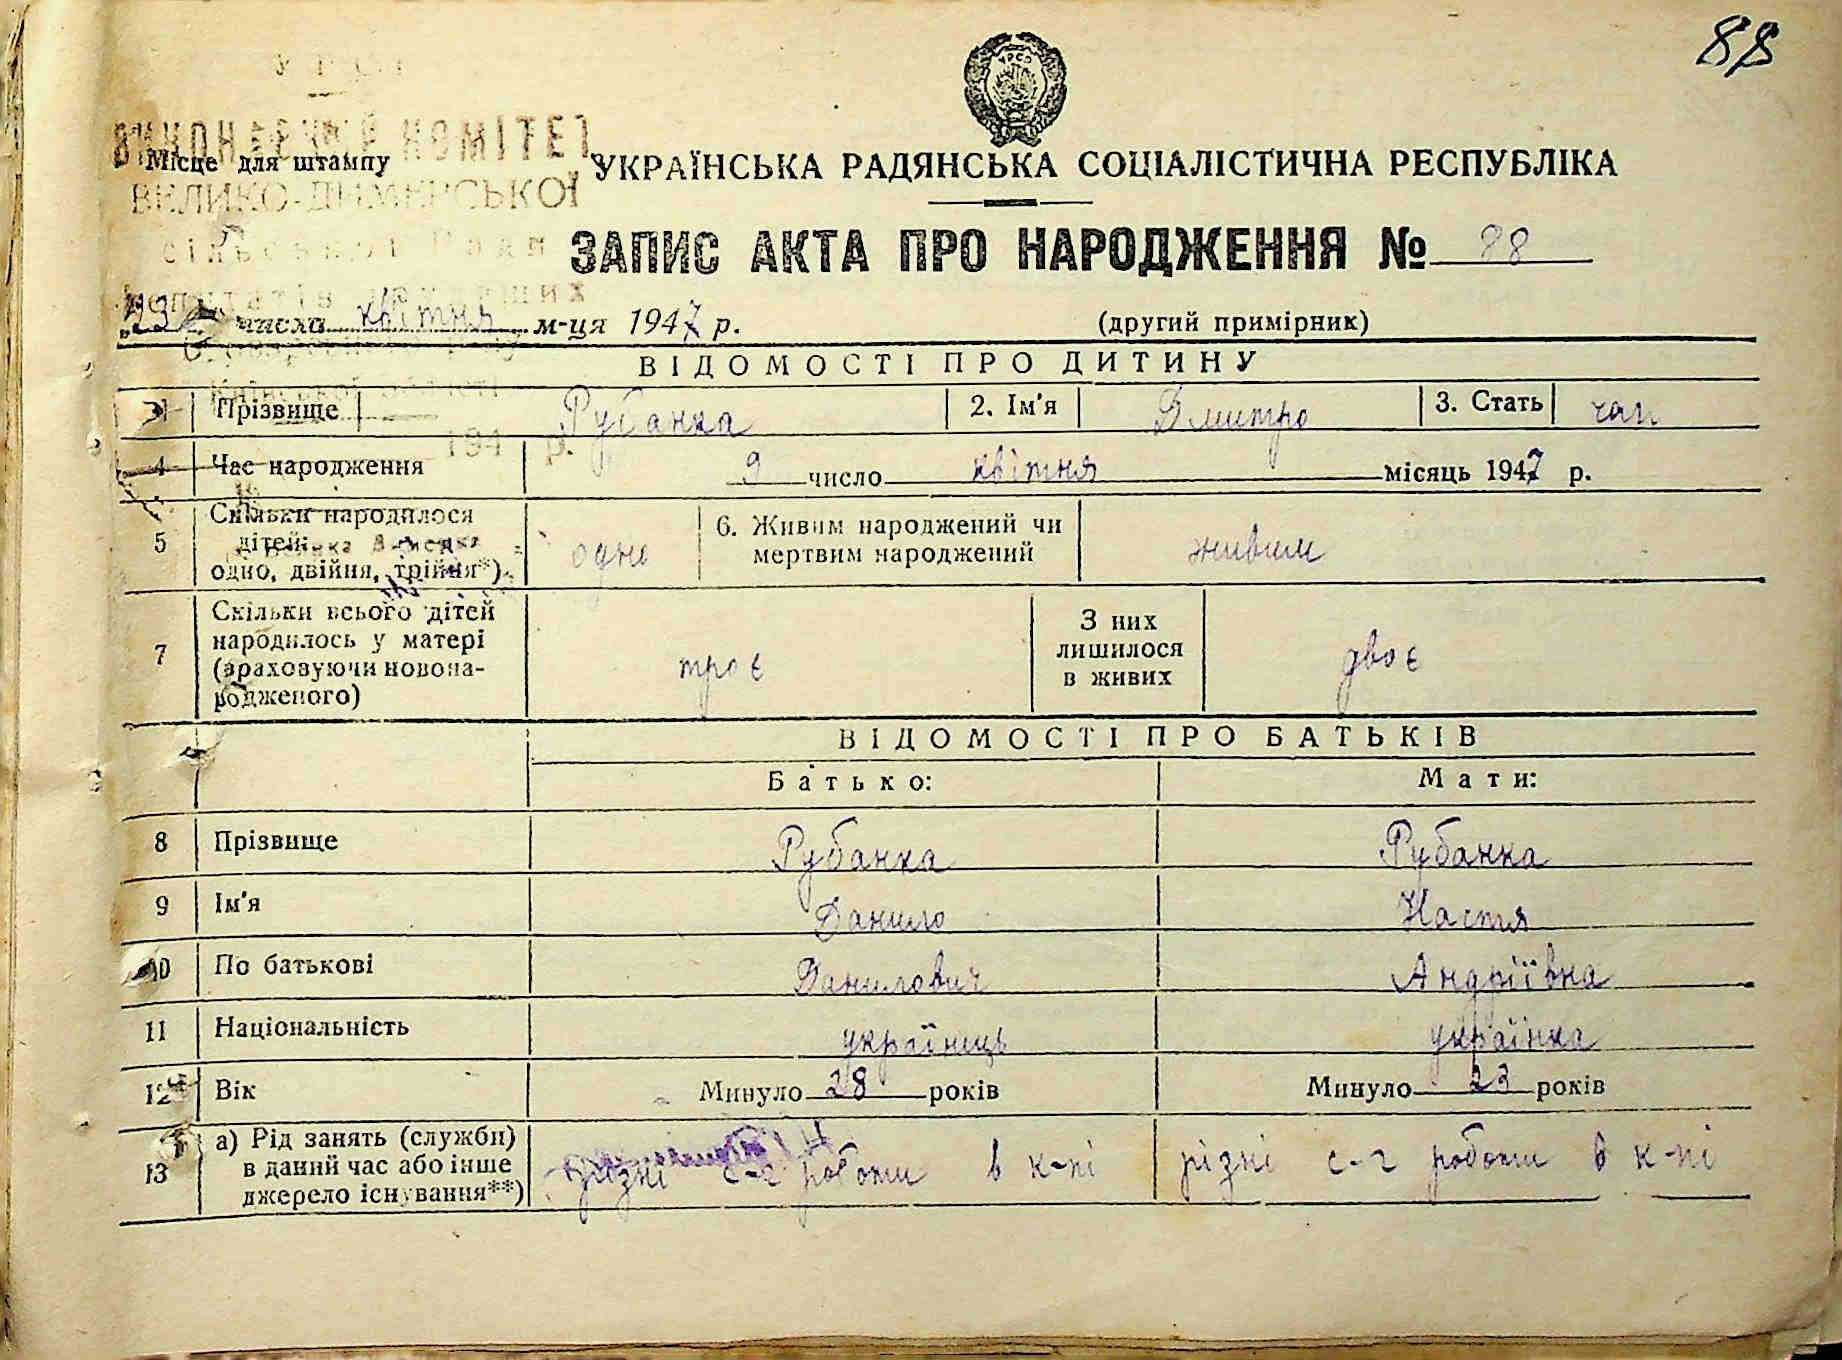 88
УРСР
ВИКОНАВЧИЙ КОМІТЕТ
Місце для штампу
УКРАЇНСЬКА РАДЯНСЬКА СОЦІАЛІСТИЧНА РЕСПУБЛІКА
ВЕЛИКО-ДИМЕРСЬКОЇ
сільської Ради
ЗАПИС АКТА ПРО НАРОДЖЕННЯ № 88
депутатів трудящих
„23“ числа квітня м-ця 1947 р.
(другий примірник)
Київської області
194 р.
ВІДОМОСТІ ПРО ДИТИНУ
1 Прізвище Рубанка 2. Ім'я Дмитро 3. Стать чол
4 Час народження 9 число квітня місяць 1947 р.
5 Скільки народилося дітей: одно, двійня, трійня*) одне 6. Живим народжений чи мертвим народжений живим
7 Скільки всього дітей народилось у матері (враховуючи новонародженого) троє З них лишилося в живих двоє
ВІДОМОСТІ ПРО БАТЬКІВ
Батько: Мати:
8 Прізвище Рубанка Рубанка
9 Ім'я Данило Настя
10 По батькові Данилович Андріївна
11 Національність українець українка
12 Вік Минуло 28 років Минуло 23 років
13 а) Рід занять (служби) в даний час або інше джерело існування**) різні с-г роботи в к-пі різні с-г роботи в к-пі